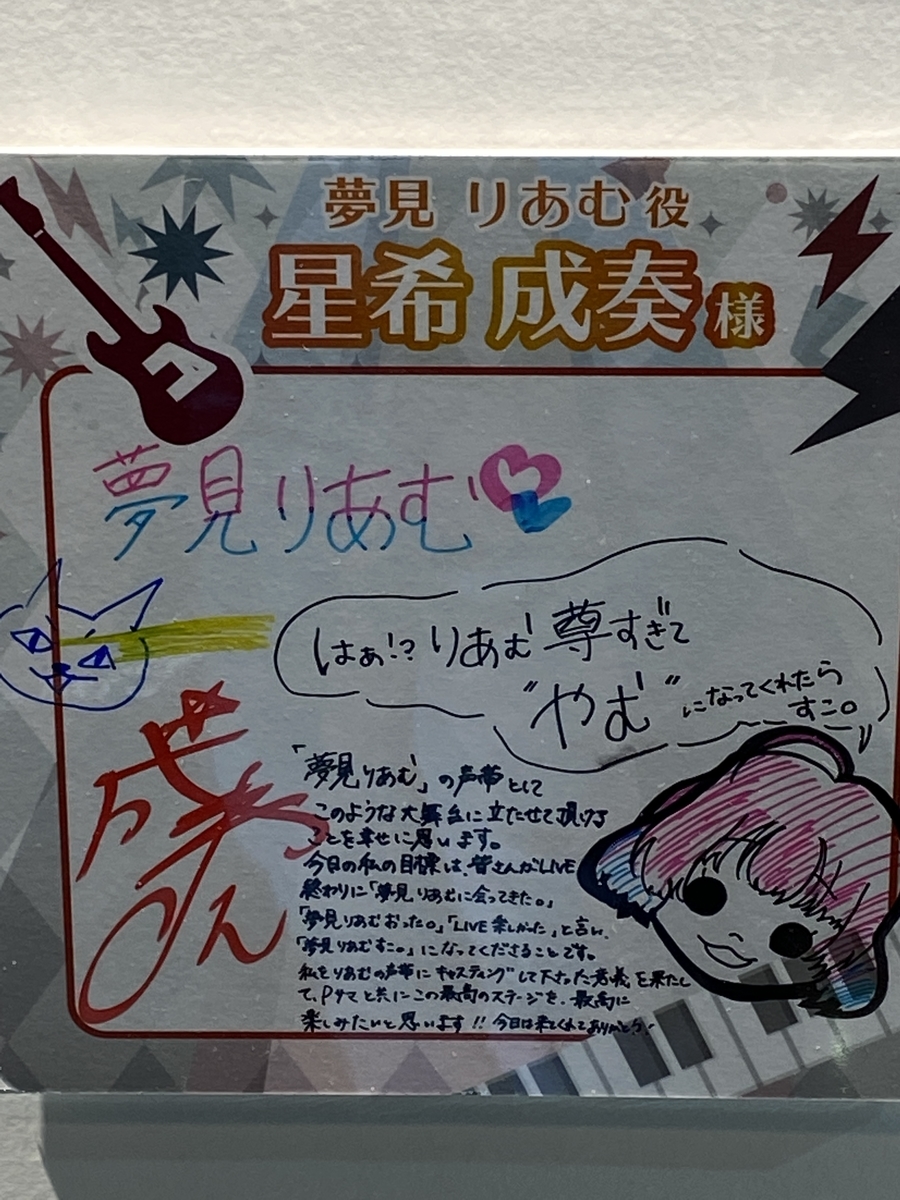 夢見 りあむ 役
星希 成奏 様
夢見りあむ
はぁ!?りあむ尊すぎて
"やむ"になってくれたら
すこ。
成奏
「夢見りあむ」の声帯として
このような大舞台に立たせて頂ける
ことを幸せに思います。
今日の私の目標は、皆さんがLIVE
終わりに「夢見りあむに会ってきた。」
「夢見りあむおった。」「LIVE楽しかった」と言い、
「夢見りあむすこ。」になってくださることです。
私をりあむの声帯にキャスティングして下さった意義を果たし
て、Pサマと共にこの最高のステージを、最高に
楽しみたいと思います!!今日は来てくれてありがとう!